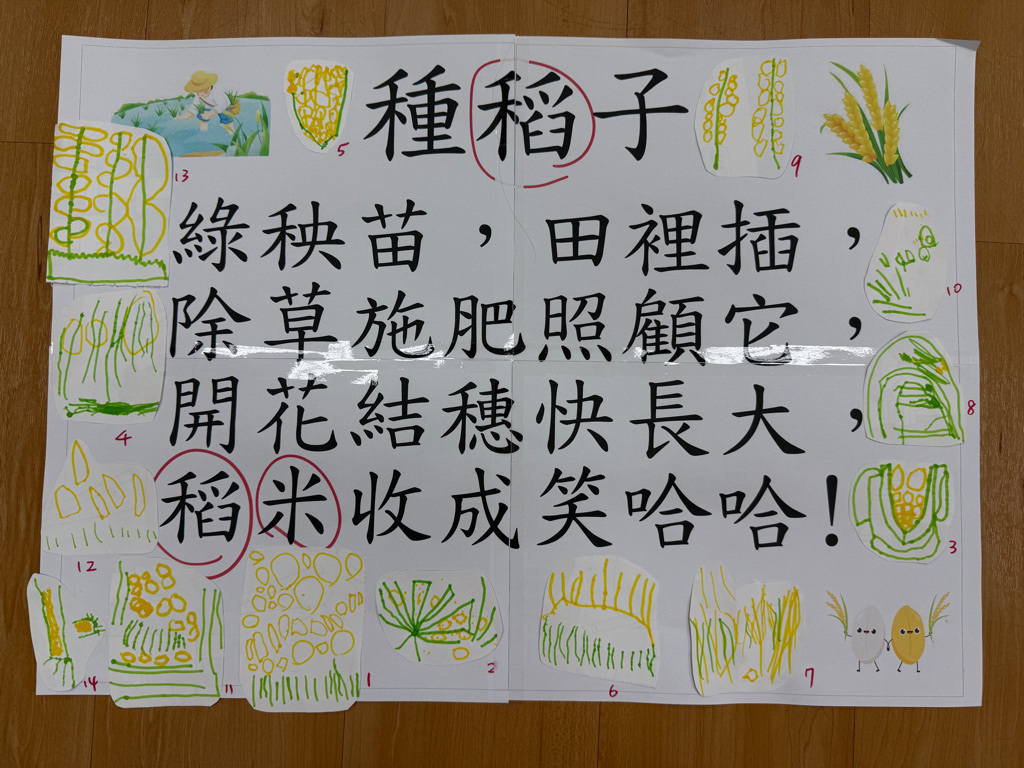 種稻子
綠秧苗，田裡插，
除草施肥照顧它，
開花結穗快長大，
稻米收成笑哈哈！
5
9
13
10
4
8
12
3
14
11
1
2
6
7